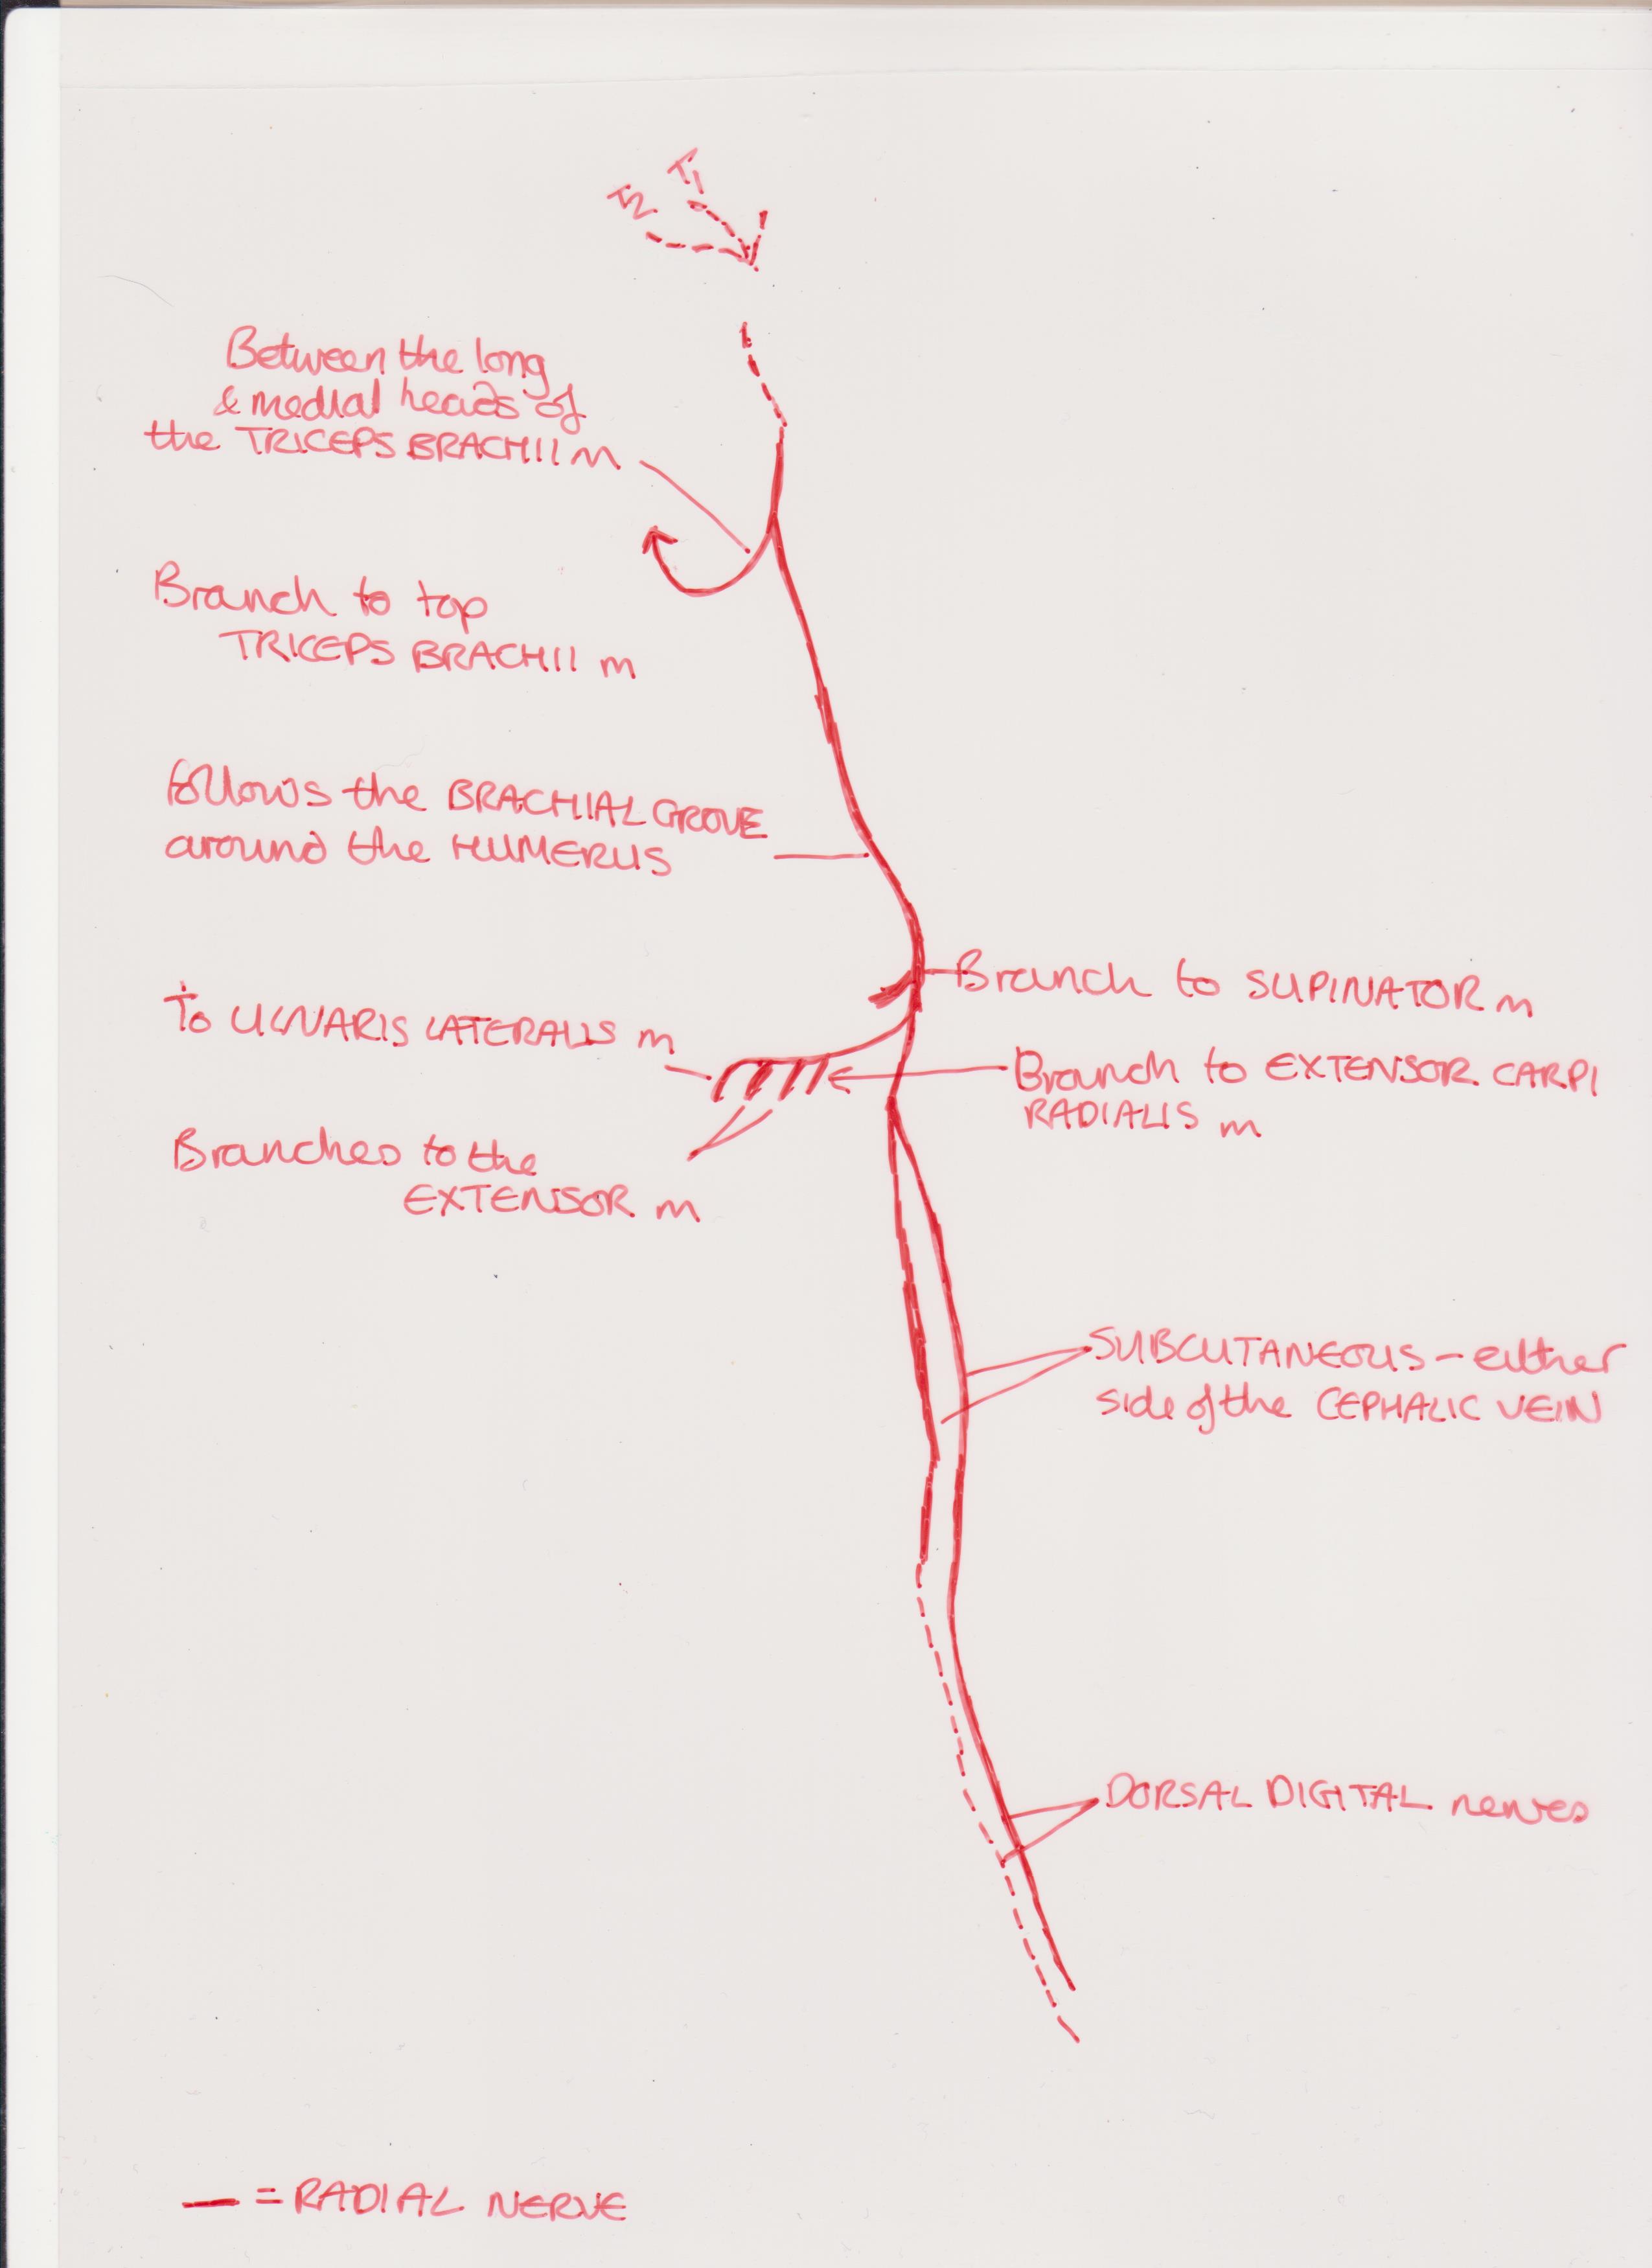 T1
T2
Between the long
& medial heads of
the TRICEPS BRACHII m
Branch to top
TRICEPS BRACHII m
follows the BRACHIAL GROVE
around the HUMERUS
Branch to SUPINATOR m
To ULNARIS LATERALIS m
Branch to EXTENSOR CARPI
RADIALIS m
Branches to the
EXTENSOR m
SUBCUTANEOUS - either
side of the CEPHALIC VEIN
DORSAL DIGITAL nerves
= RADIAL NERVE